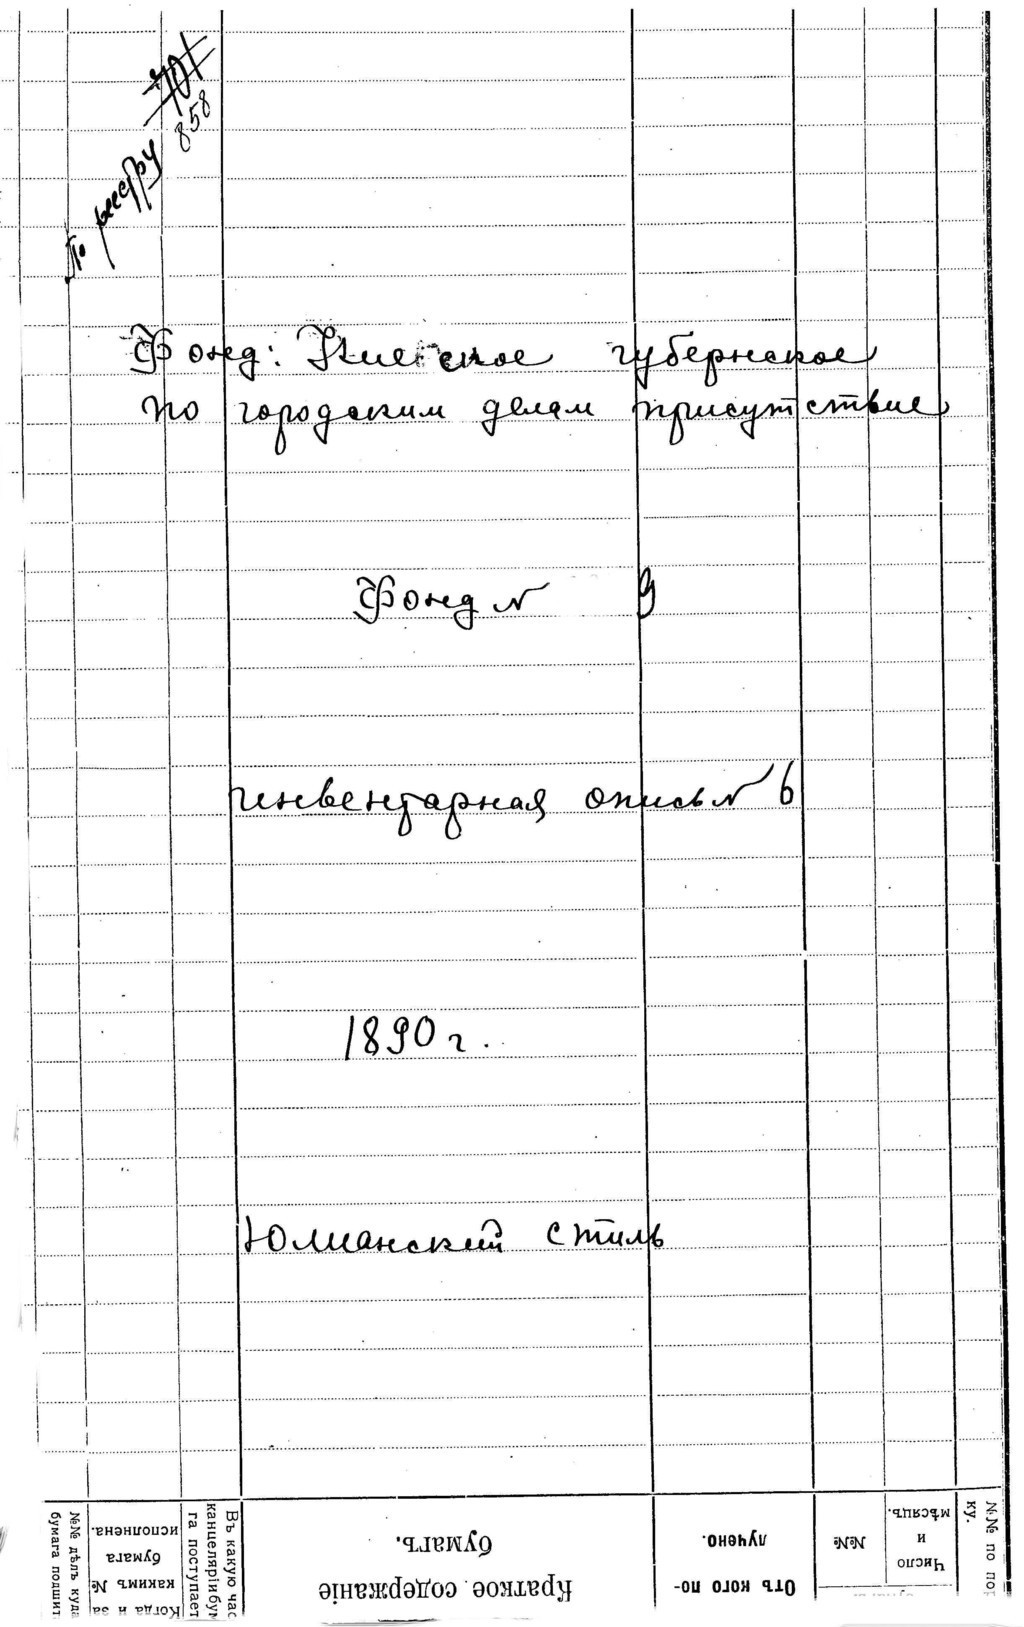 По реестру 701
858
Фонд: Киевское губернское
по городским делам присутствие
Фонд № 9
инвентарная опись № 6
1890 г.
Юлианский стиль
№№ по пор
ку.
Число
и
мѣсяцъ.
№№
Отъ кого по-
лучено.
Краткое содержаніе
бумагъ.
Въ какую час
канцеляріи бум
га поступает
Когда и за
какимъ №
бумага
исполнена.
№№ дѣлъ куда
бумага подшит